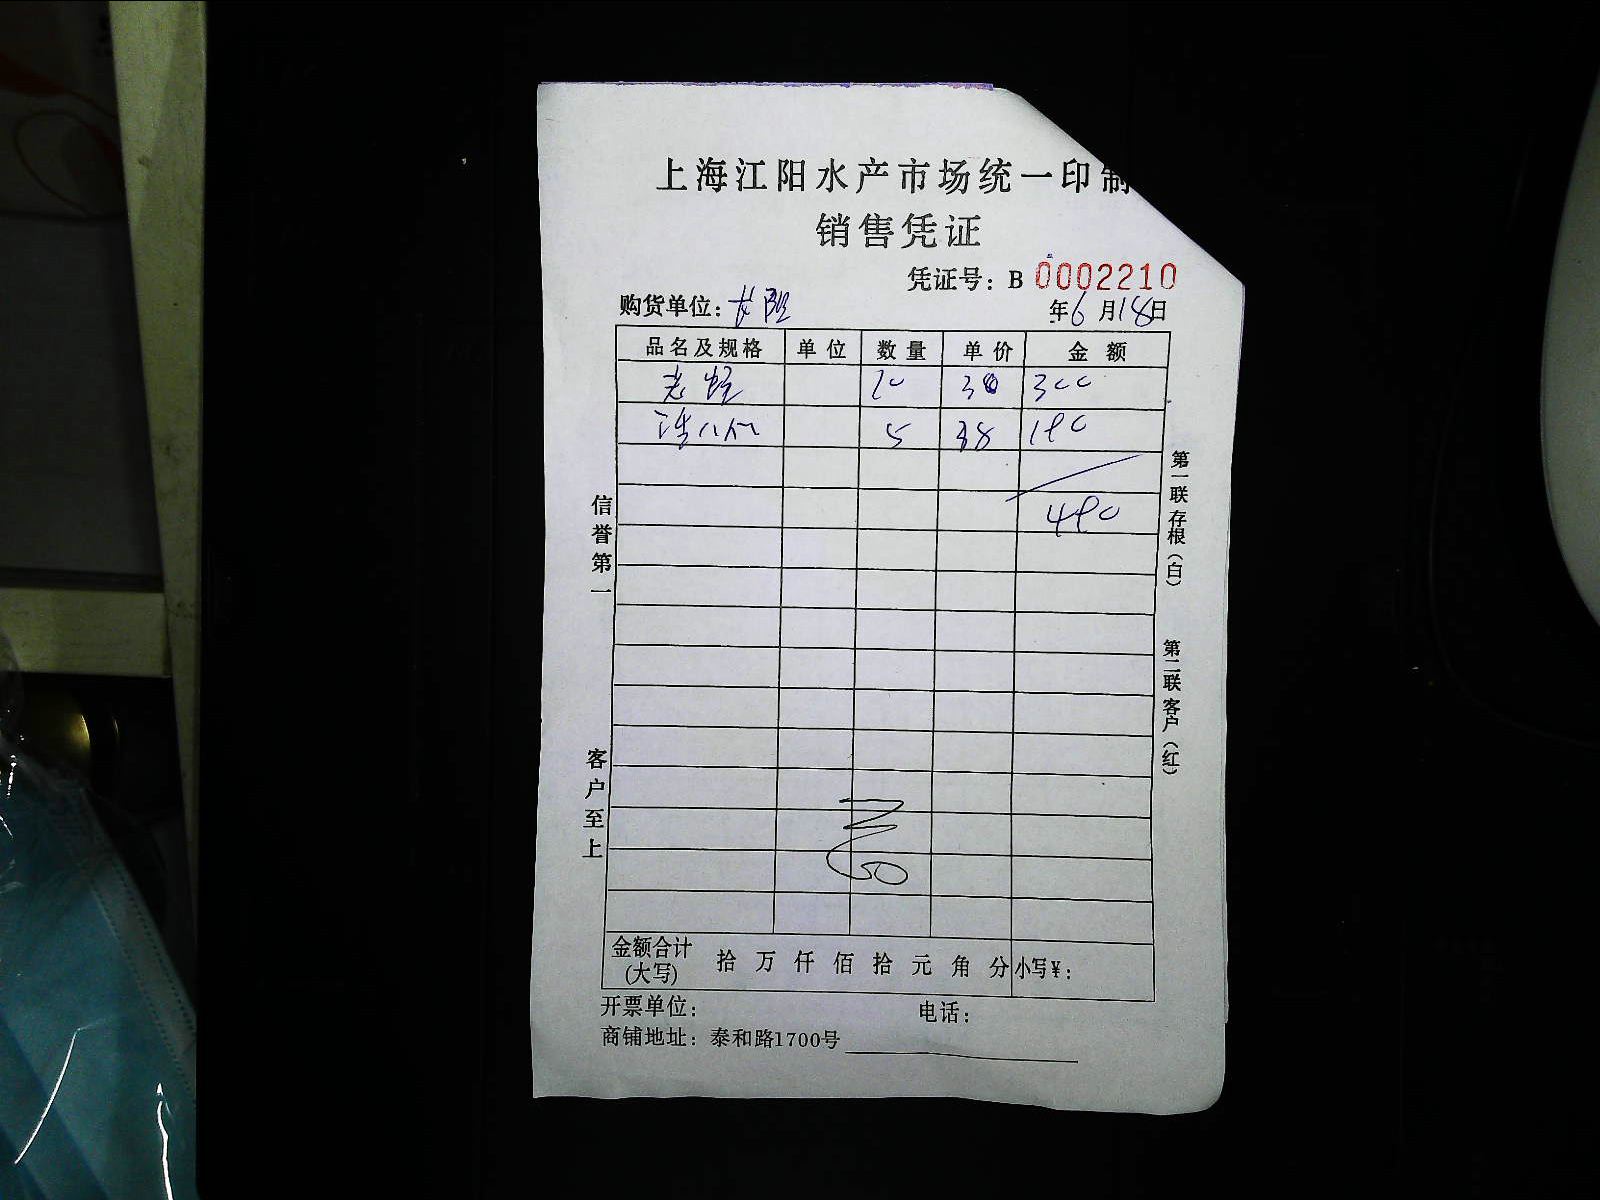 上海江阳水产市场统一印制
销售凭证
凭证号：B 0002210
购货单位：
年6月18日
品名及规格 单位 数量 单价 金额
老蛏 10 30 300
5 38 190
490
信誉第一
客户至上
第一联存根（白）
第二联客户（红）
金额合计（大写） 拾 万 仟 佰 拾 元 角 分 小写¥：
开票单位： 电话：
商铺地址：泰和路1700号